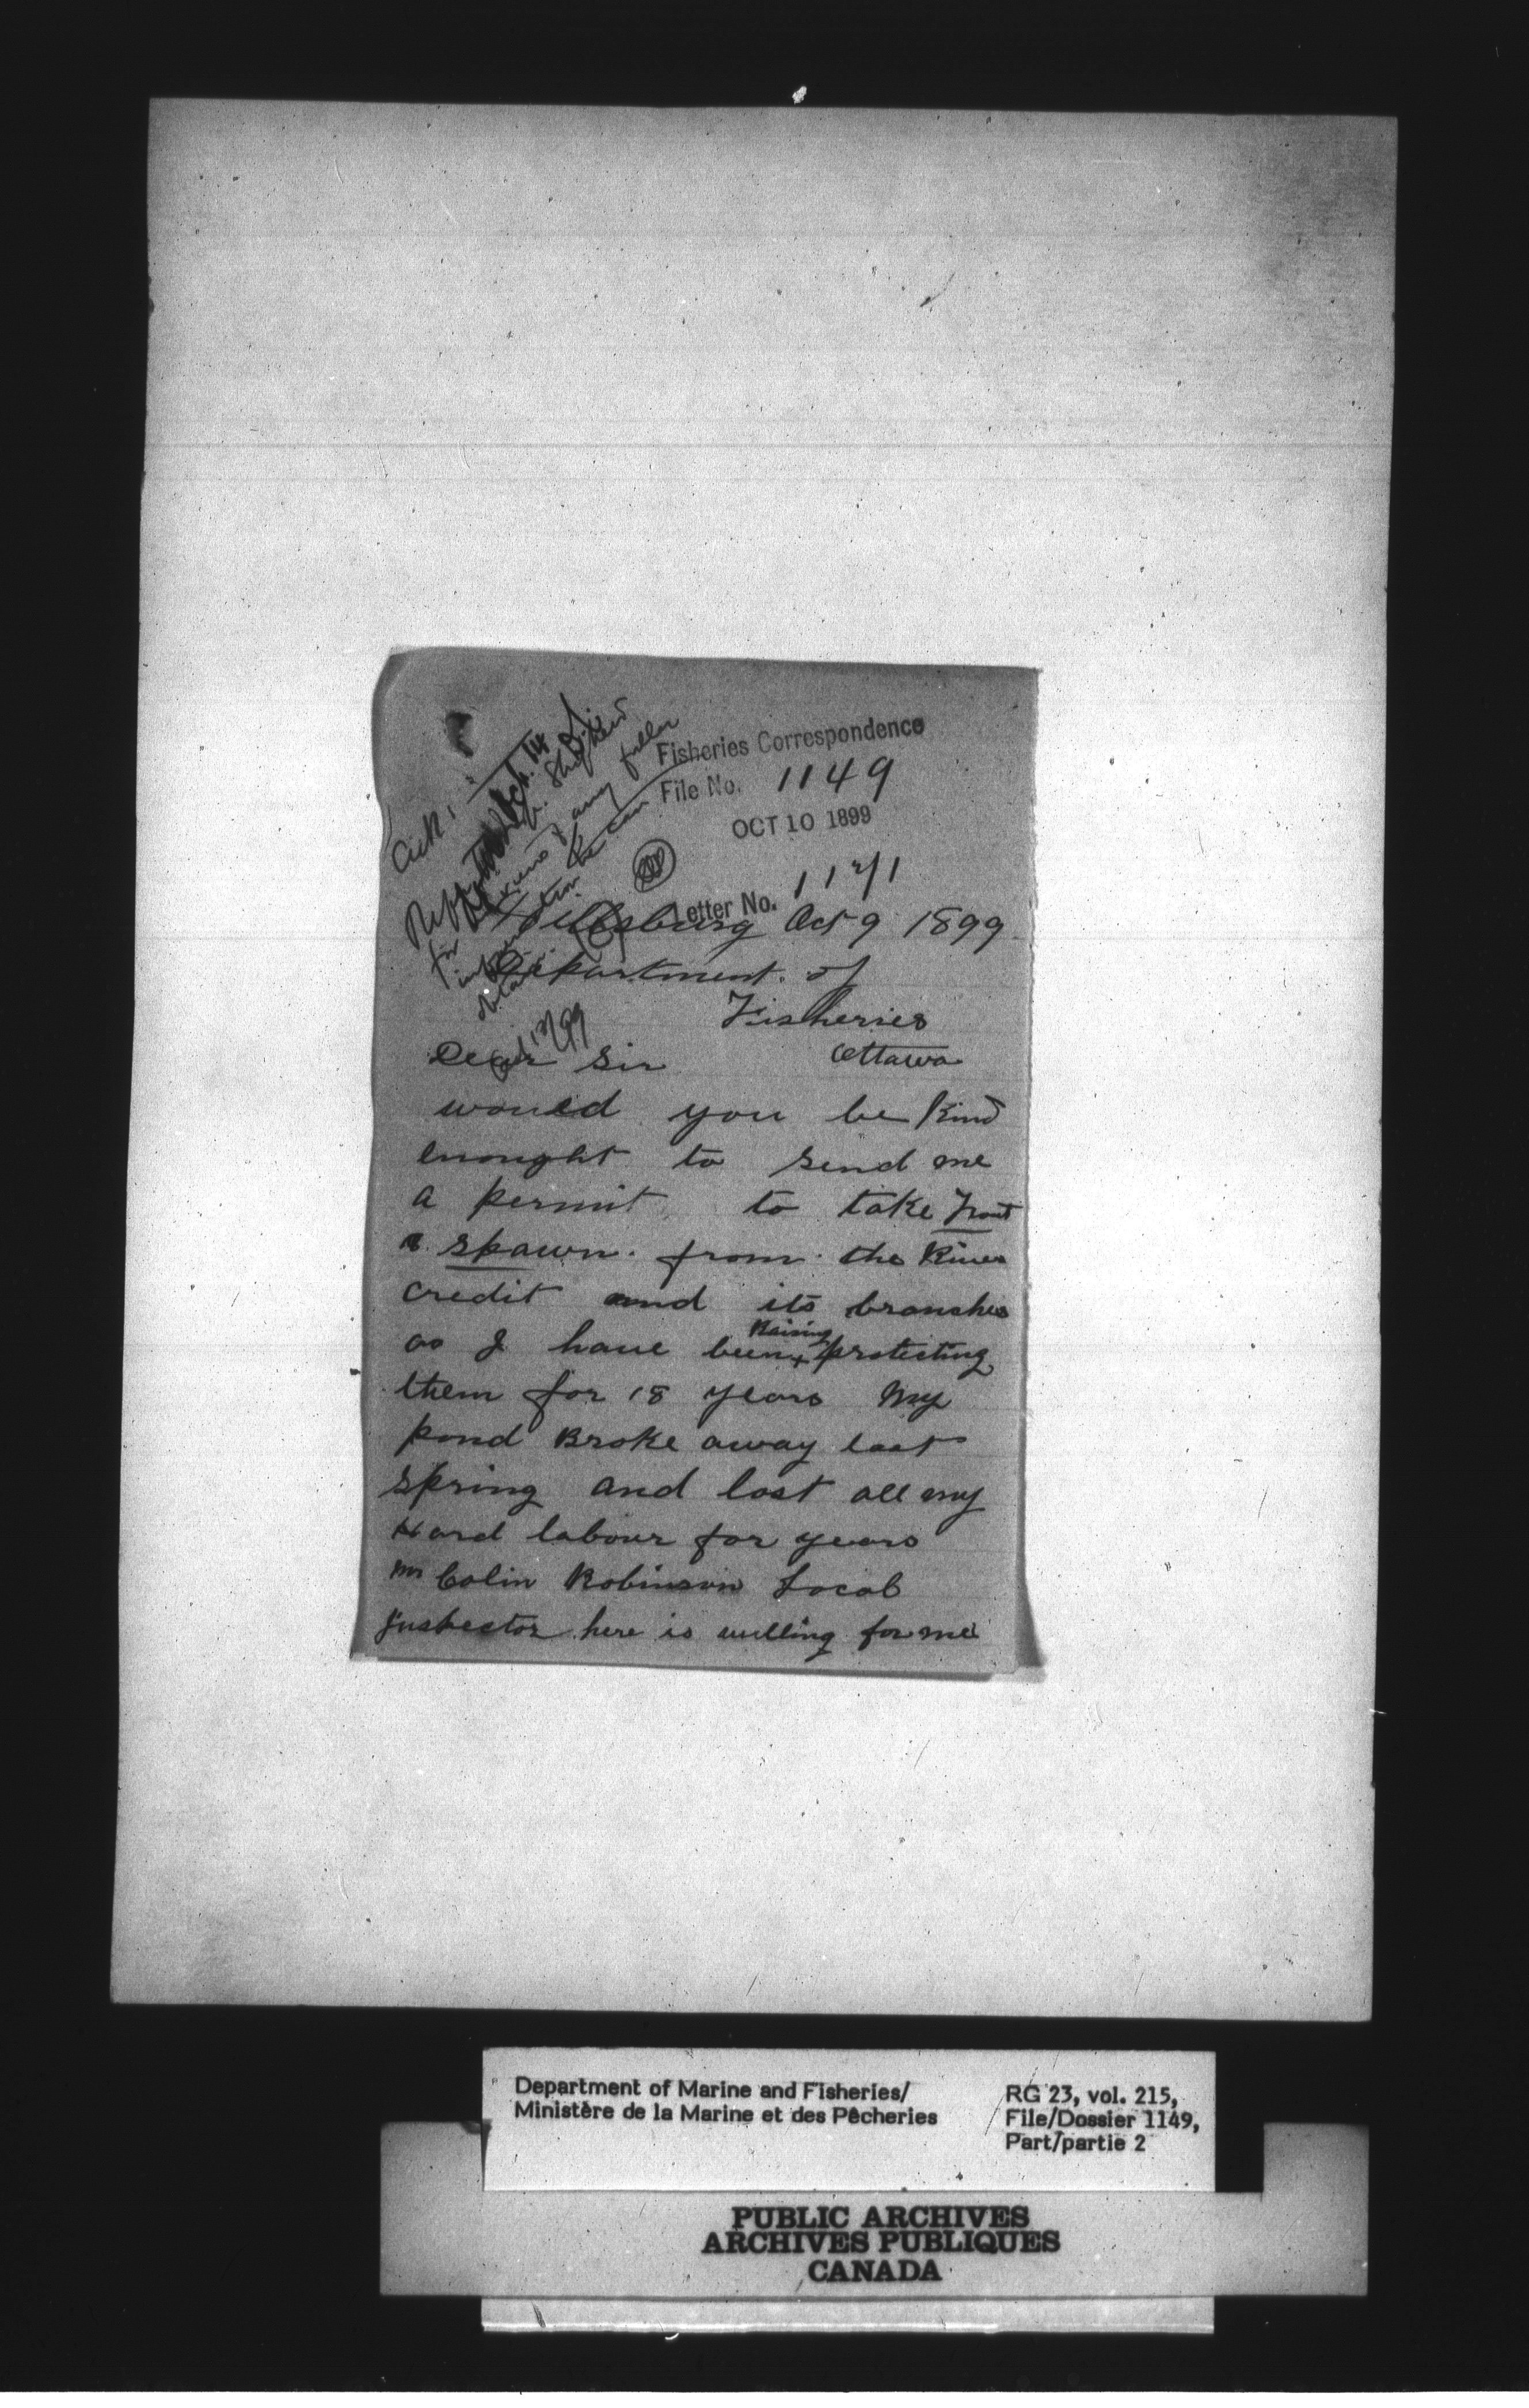 Fisheries Correspondence
File No. 1149
OCT 10 1899
Letter No. 1171
Ack.
Oct. 14
for views & any fuller
he can
Hillsburg Oct 9 1899
Department of
Fisheries
Ottawa
Dear Sir
would you be kind
enought to send me
a permit to take Trout
spawn from the River
credit and its branches
as I have been + Raising protecting
them for 18 years My
pond Broke away last
spring and lost all my
Hard labour for years
Mr Colin Robinson Local
Inspector here is willing for me
Department of Marine and Fisheries/
Ministère de la Marine et des Pêcheries
RG 23, vol. 215,
File/Dossier 1149,
Part/partie 2
PUBLIC ARCHIVES
ARCHIVES PUBLIQUES
CANADA